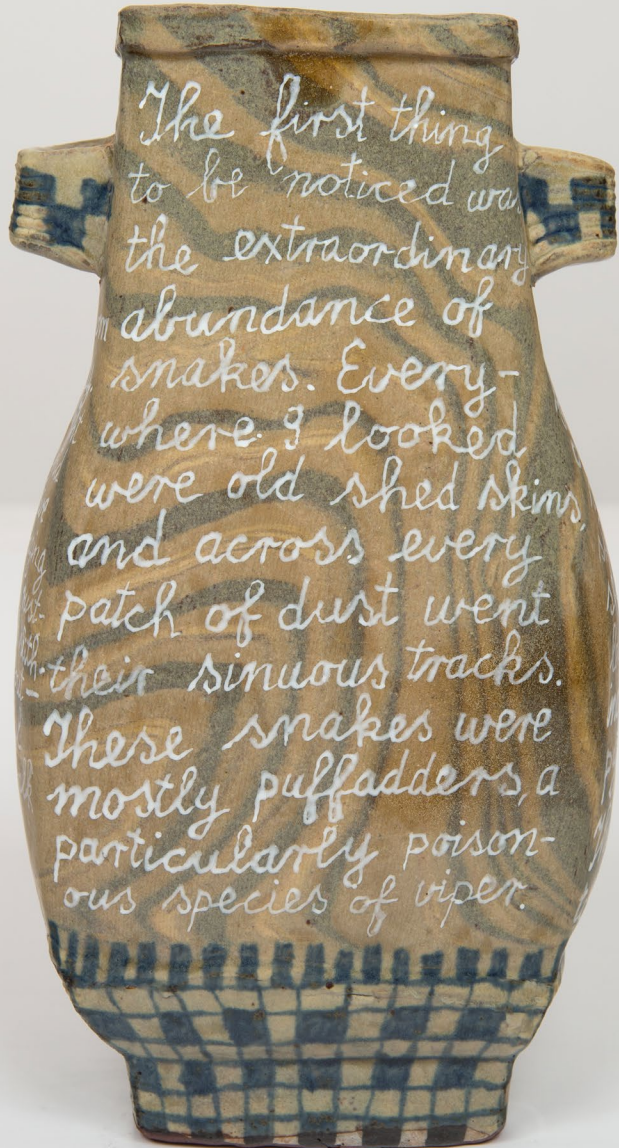 The first thing
to be noticed was
the extraordinary
abundance of
snakes. Every-
where I looked
were old shed skins,
and across every
patch of dust went
their sinuous tracks.
These snakes were
mostly puffadders, a
particularly poison-
ous species of viper.